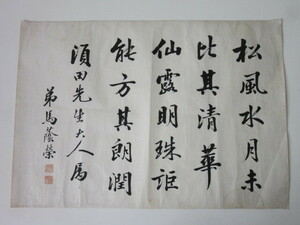 松風水月未
比其清華
仙露明珠詎
能方其朗潤
須田先生大人属
弟馬蔭榮